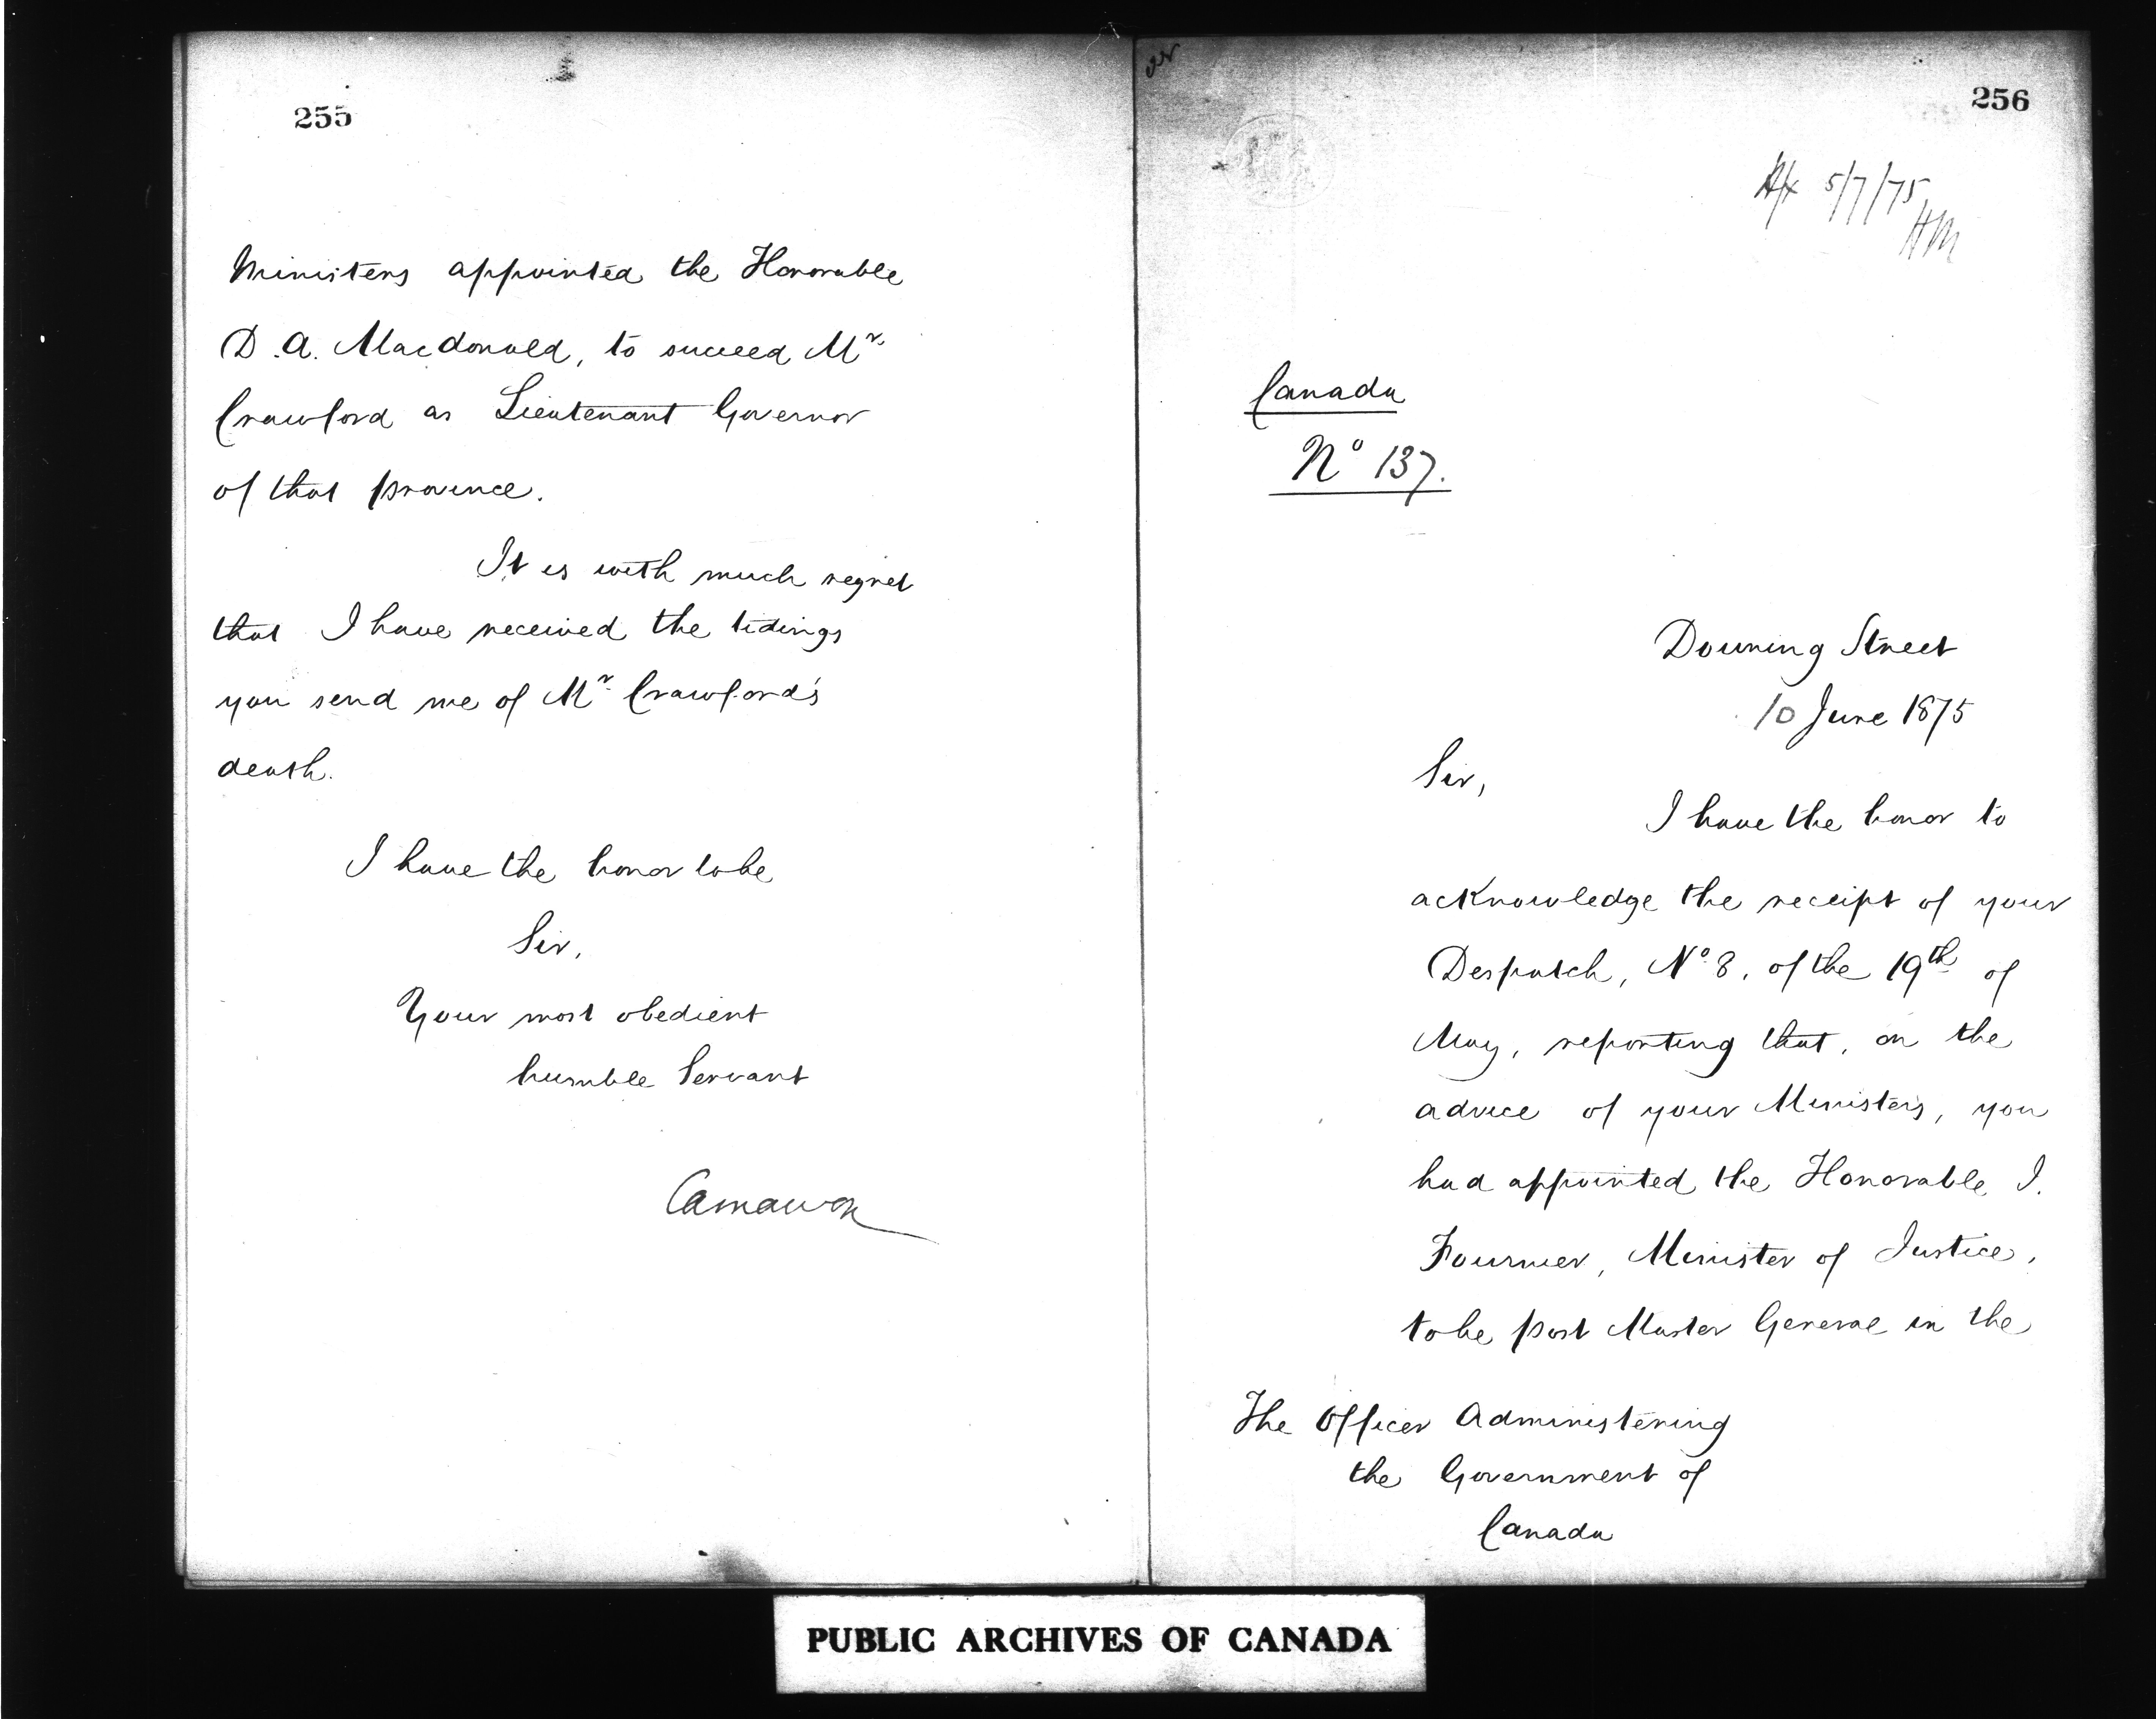 255
Ministers appointed the Honorable
D. A. Macdonald, to succeed Mr
Crawford as Lieutenant Governor
of that province.
It is with much regret
that I have received the tidings
you send me of Mr Crawford's
death.
I have the honor to be
Sir,
Your most obedient
humble Servant
Carnarvon
256
5/7/75
HM
Canada
No 137.
Downing Street
10 June 1875
Sir,
I have the honor to
acknowledge the receipt of your
Despatch, No 8, of the 19th of
May, reporting that, on the
advice of your Ministers, you
had appointed the Honorable I.
Fournier, Minister of Justice,
to be Post Master General in the
The Officer Administering
the Government of
Canada
PUBLIC ARCHIVES OF CANADA